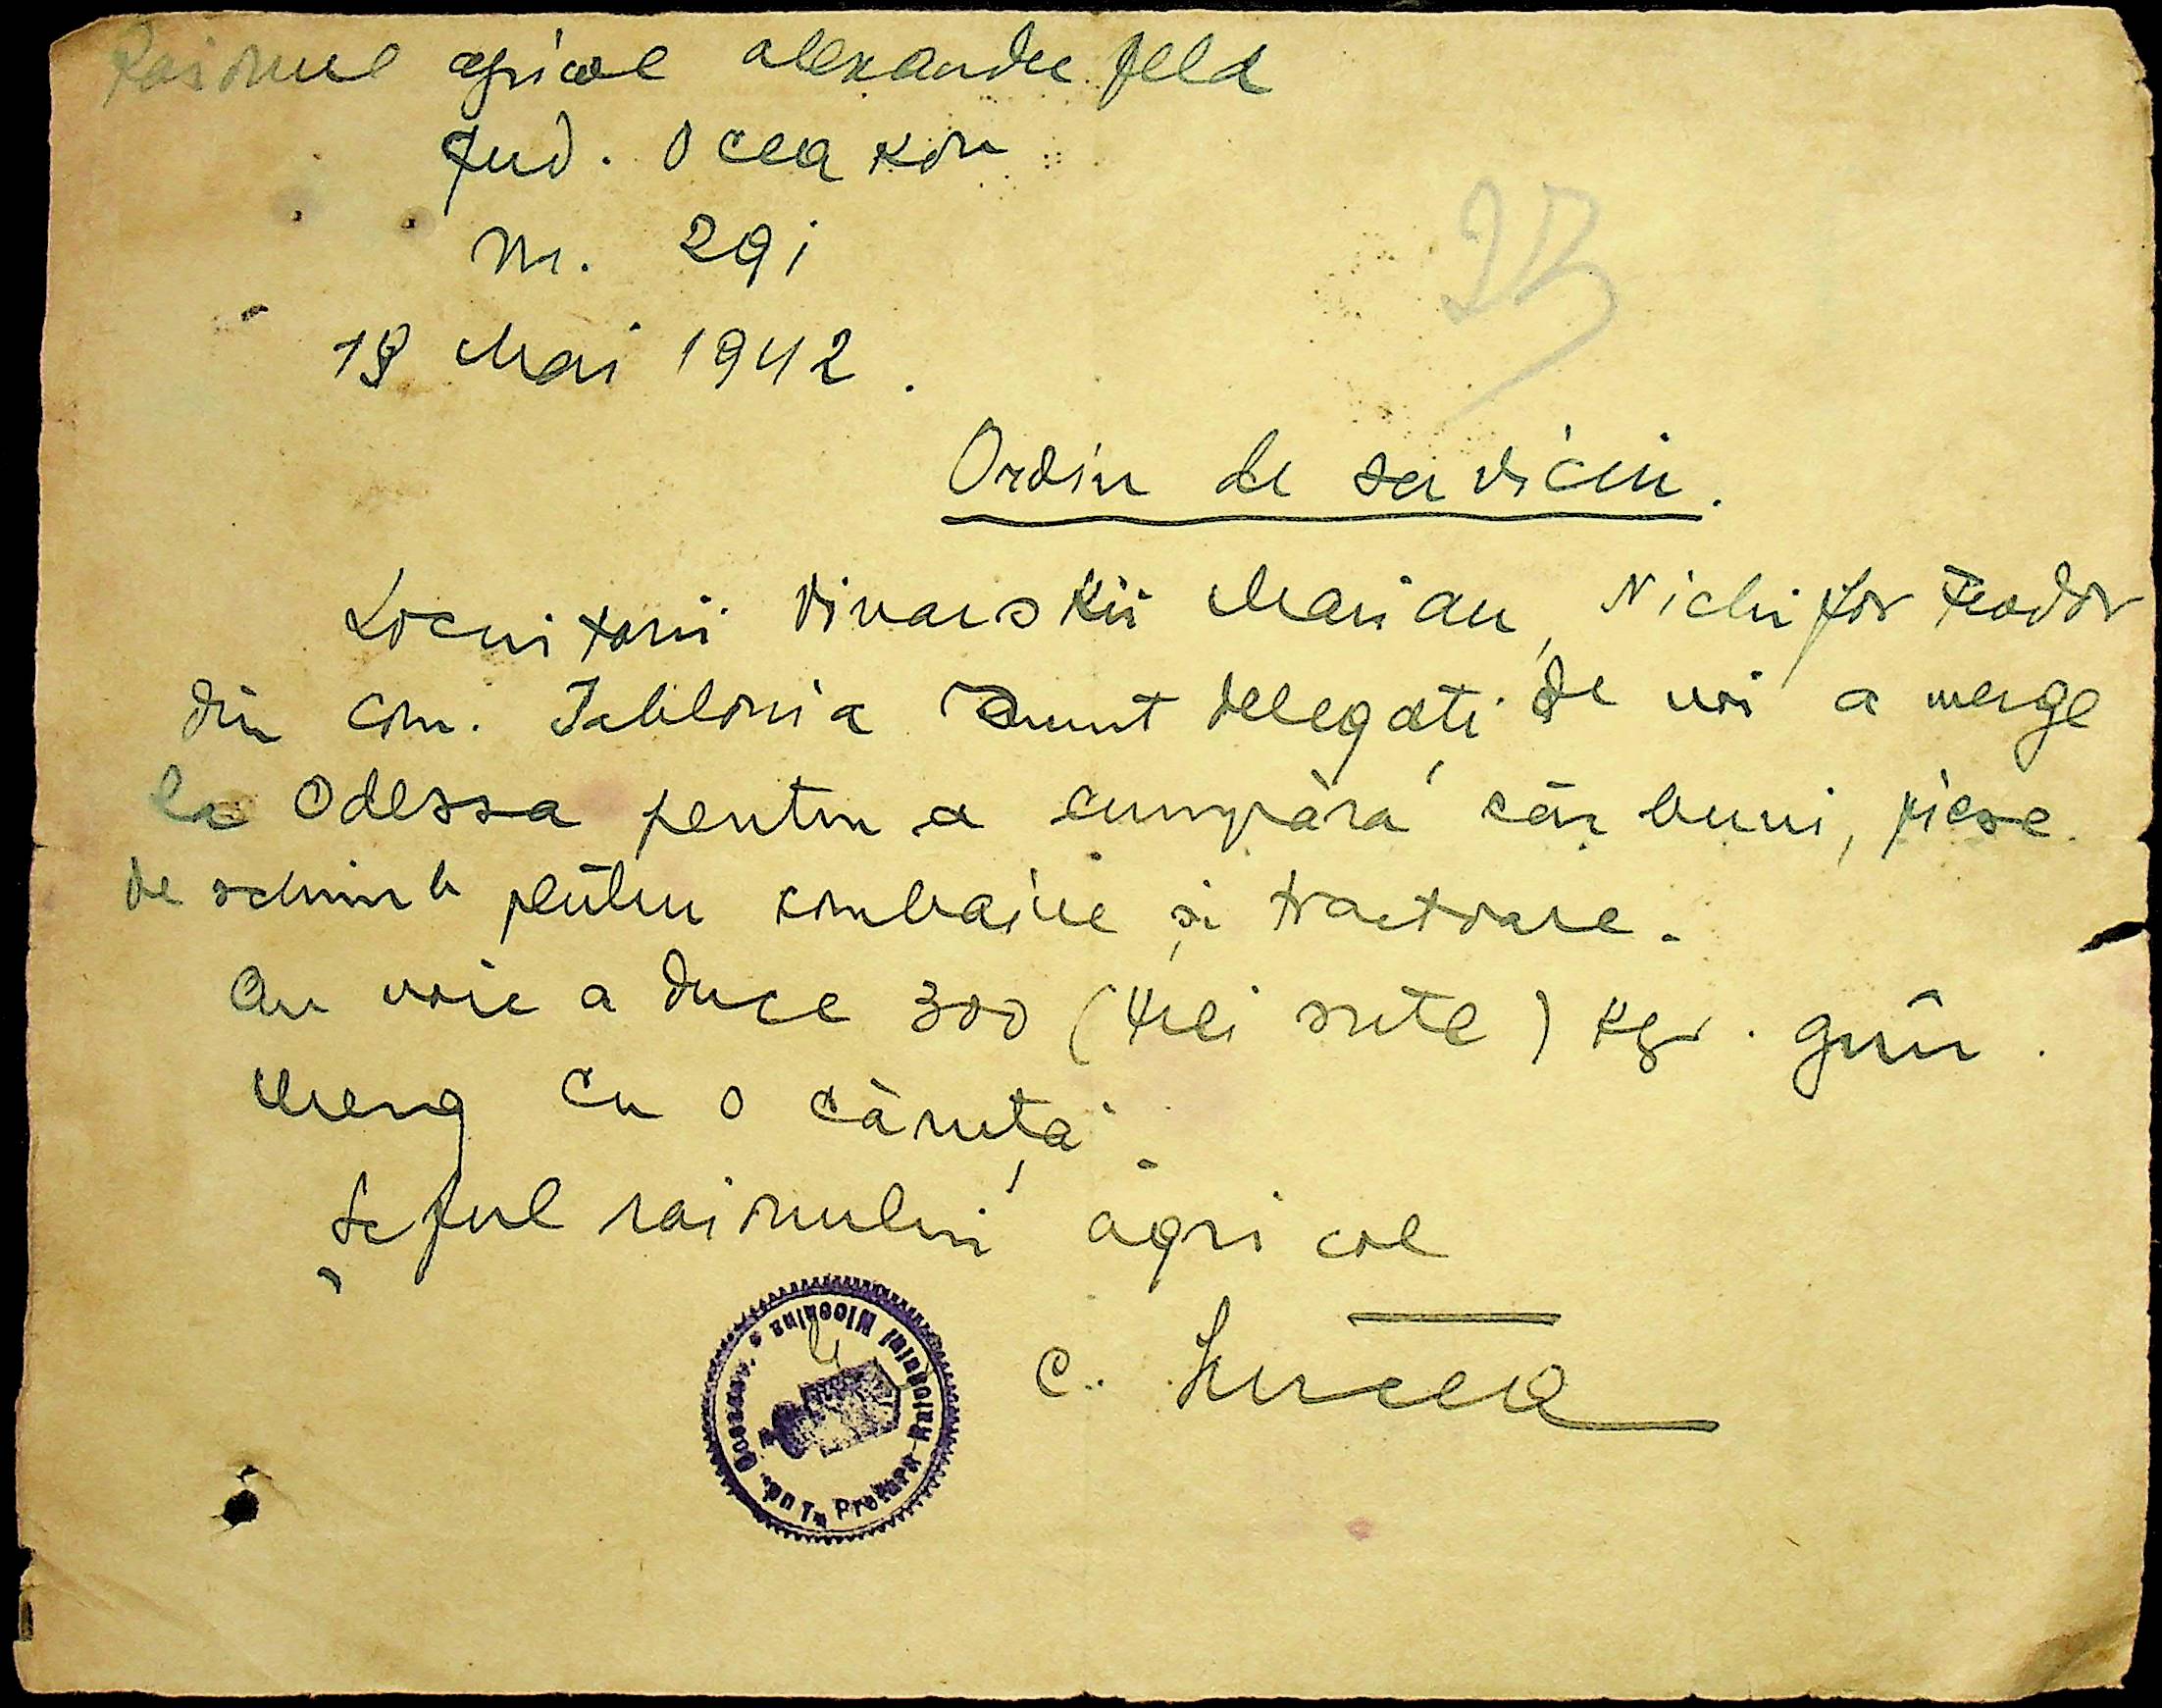 Raionul agricol Alexanderfeld
Jud. Oceakov
Nr. 291
18 Mai 1942.
Ordin de serviciu.
Locuitorii Vinarskii Marian, Nichifor Feodor
din com. Iablonia sunt delegați de noi a merge
la Odessa pentru a cumpăra cărbuni, piese
de schimb pentru combaine și tractoare.
Au voie a duce 300 (trei sute) kgr. grîu.
Merg cu o căruță.
Șeful raionului agricol
C.
Pretura Raionului